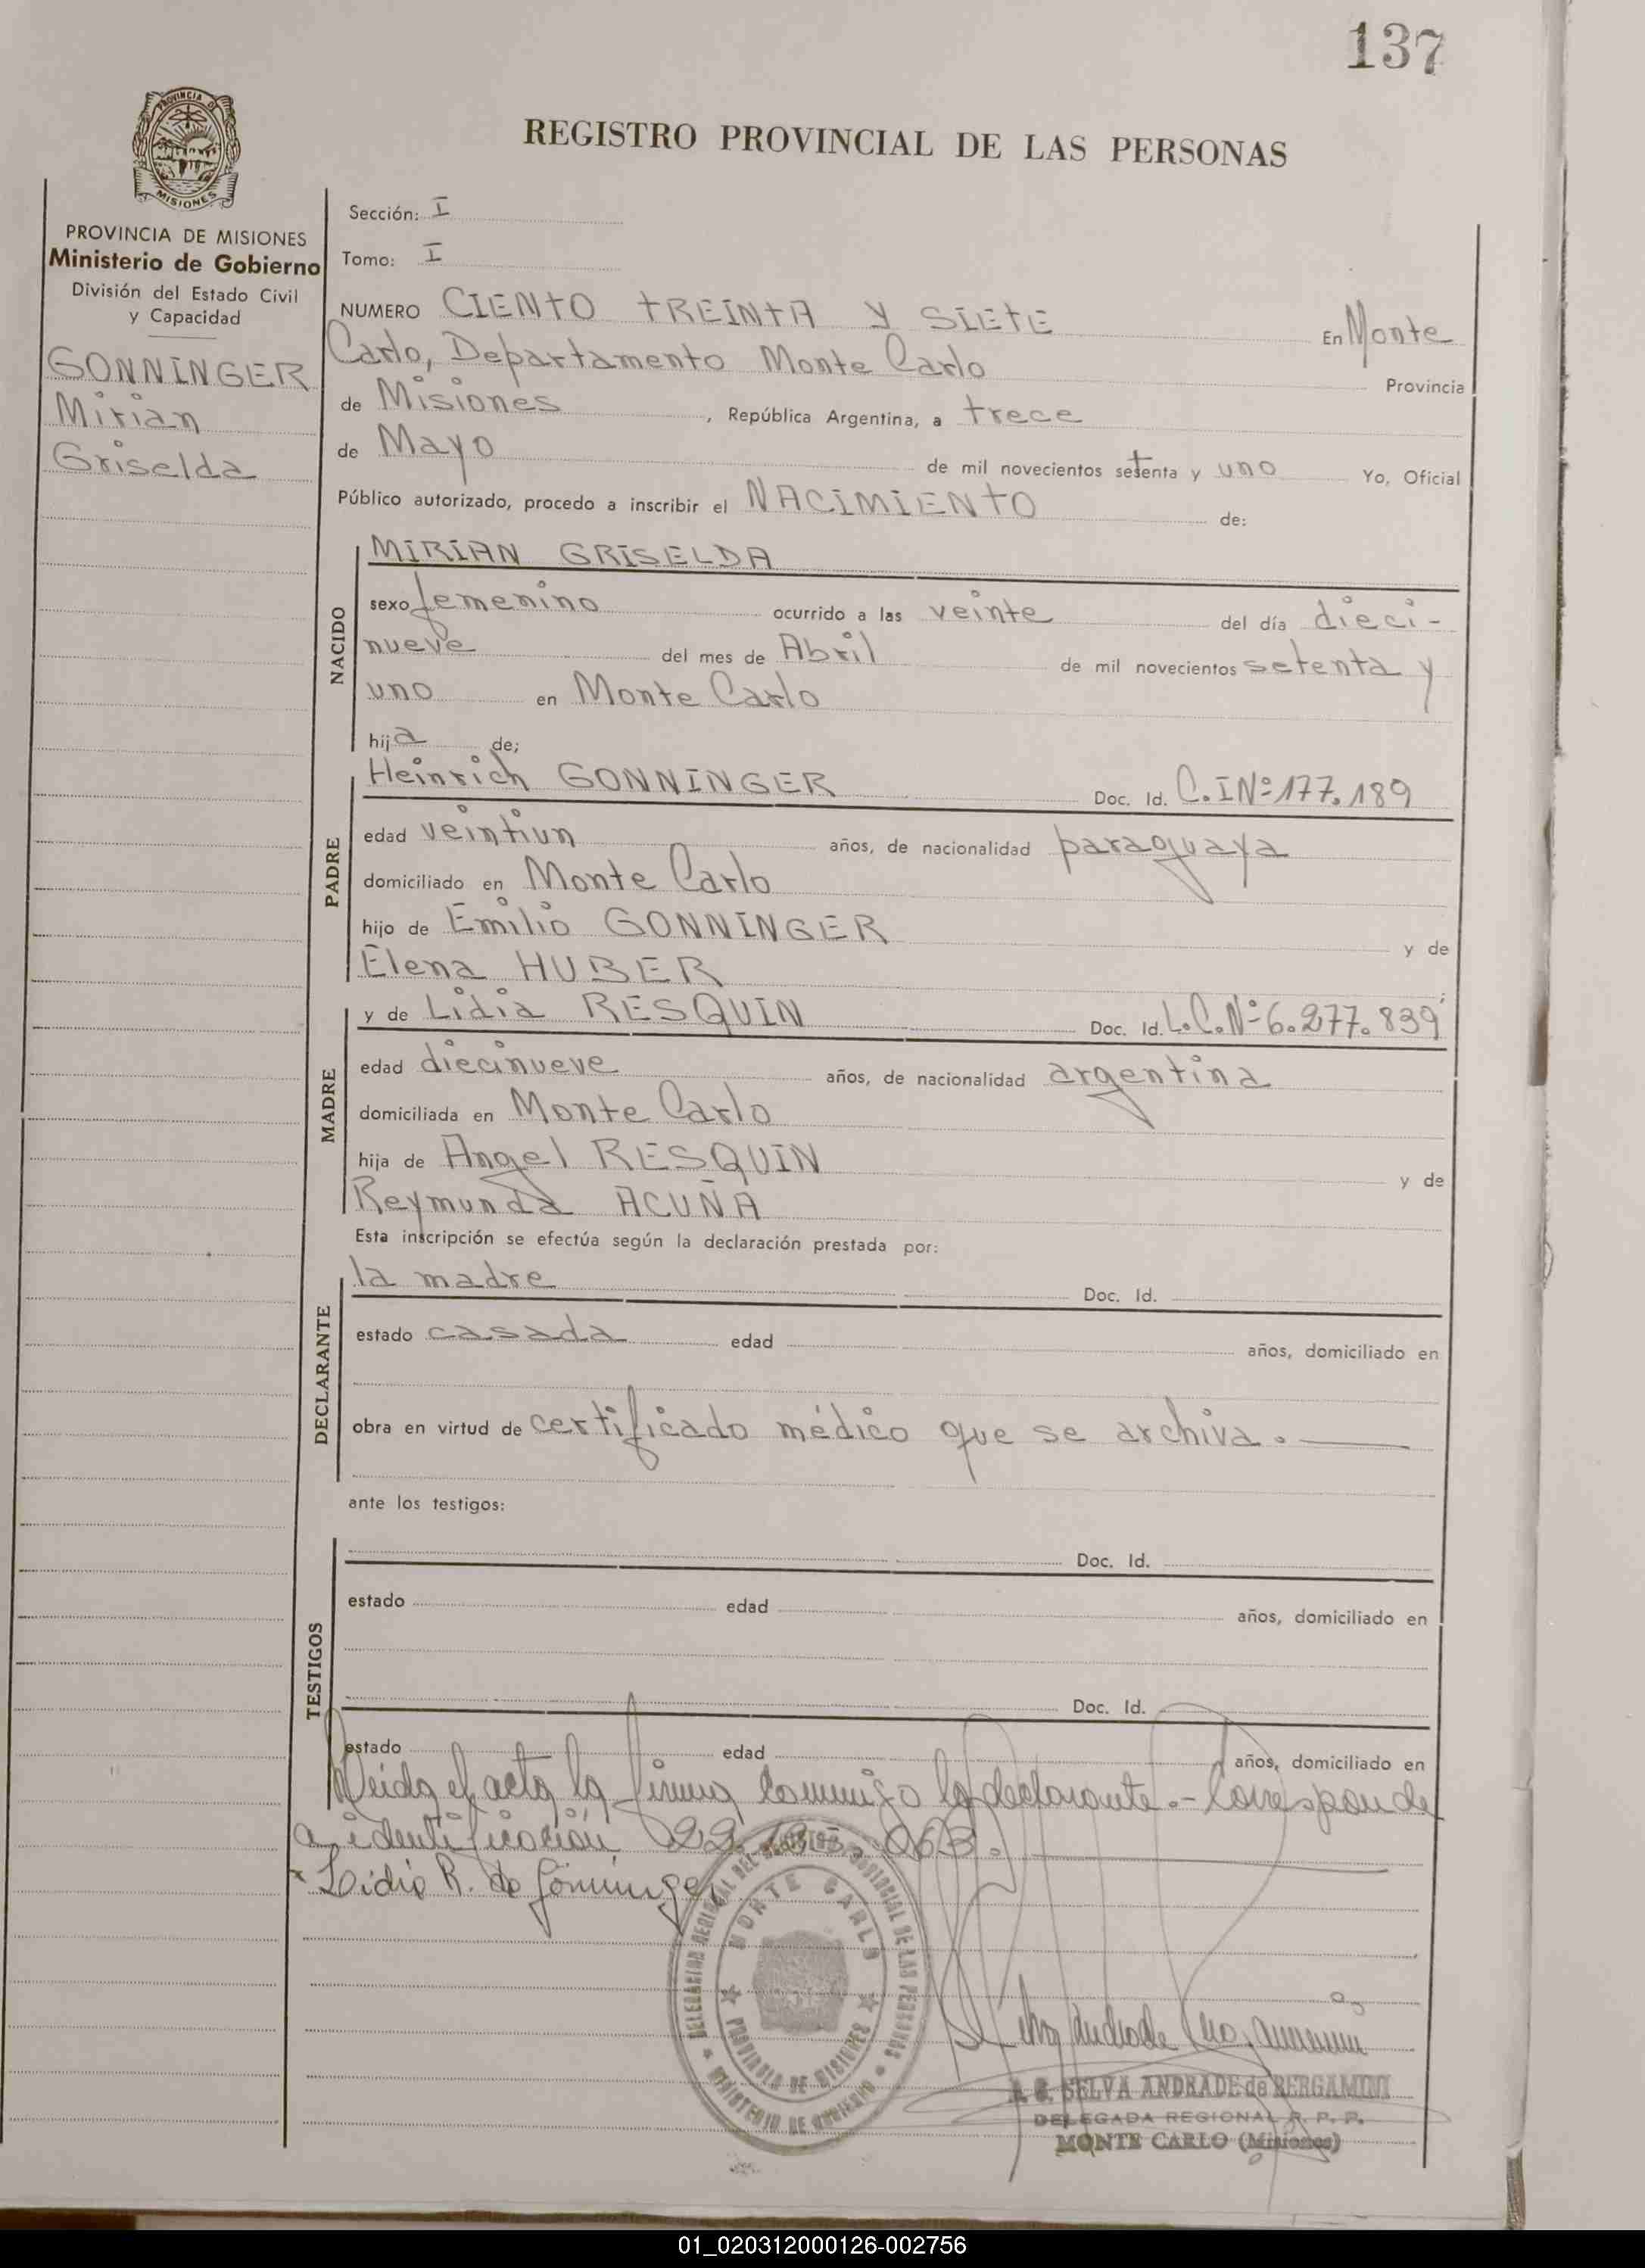 137
PROVINCIA DE
MISIONES
REGISTRO PROVINCIAL DE LAS PERSONAS
PROVINCIA DE MISIONES
Ministerio de Gobierno
División del Estado Civil
y Capacidad
GONNINGER
Mirian
Griselda
Sección: I
Tomo: I
NUMERO CIENTO TREINTA Y SIETE En Monte
Carlo, Departamento Monte Carlo Provincia
de Misiones, República Argentina, a trece
de Mayo de mil novecientos setenta y uno Yo, Oficial
Público autorizado, procedo a inscribir el NACIMIENTO de:
NACIDO
MIRIAN GRISELDA
sexo femenino ocurrido a las veinte del día dieci-
nueve del mes de Abril de mil novecientos setenta y
uno en Monte Carlo
hija de;
PADRE
Heinrich GONNINGER Doc. Id. C.I Nº 177.189
edad veintiun años, de nacionalidad paraguaya
domiciliado en Monte Carlo
hijo de Emilio GONNINGER y de
Elena HUBER
MADRE
y de Lidia RESQUIN Doc. Id. L.C.Nº 6.277.839
edad diecinueve años, de nacionalidad argentina
domiciliada en Monte Carlo
hija de Angel RESQUIN y de
Reymunda ACUÑA
Esta inscripción se efectúa según la declaración prestada por:
DECLARANTE
la madre Doc. Id.
estado casada edad años, domiciliado en
obra en virtud de certificado médico que se archiva.
ante los testigos:
TESTIGOS
Doc. Id.
estado edad años, domiciliado en
Doc. Id.
estado edad años, domiciliado en
Leida el acta la firma conmigo la declarante.- Corresponde
a identificación 22.135.063.
Lidia R. de Gonninger
DELEGACION REGIONAL DEL REGISTRO PROVINCIAL DE LAS PERSONAS
MONTE CARLO
PROVINCIA DE MISIONES
MINISTERIO DE GOBIERNO
SELVA ANDRADE de BERGAMINI
DELEGADA REGIONAL R. P. P.
MONTE CARLO (Misiones)
01_020312000126-002756